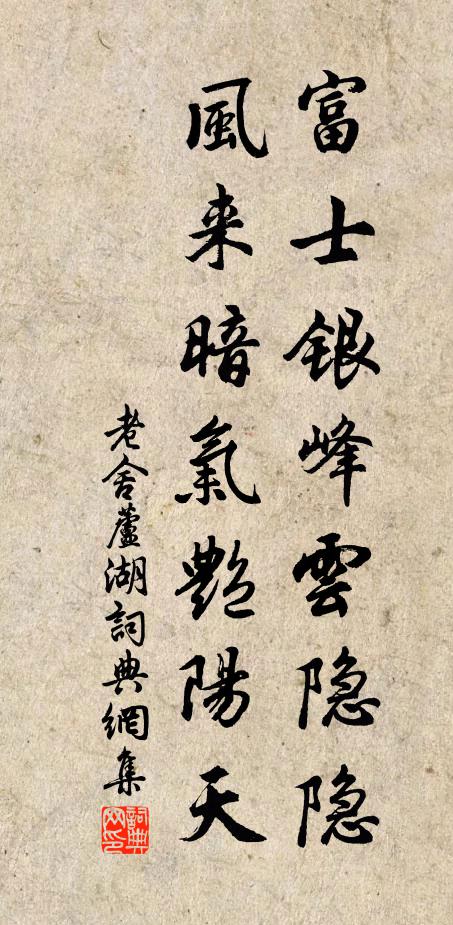 富士銀峰雲隐隐
風来暗氣艷陽天
老舍蘆湖詞典網集
詞典网印